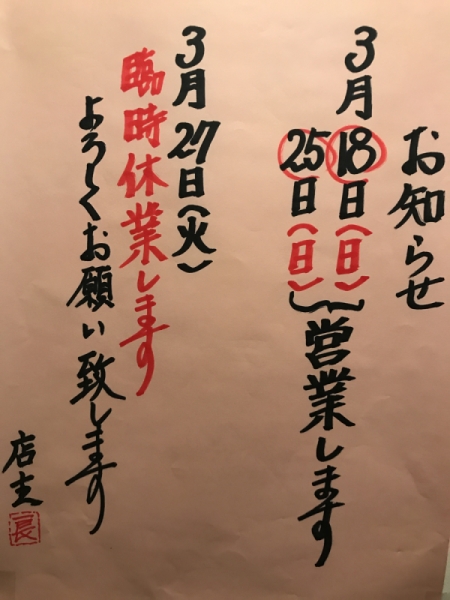 お知らせ
3月18日(日)
25日(日)
営業します
3月27日(火)
臨時休業します
よろしくお願い致します
店主
長